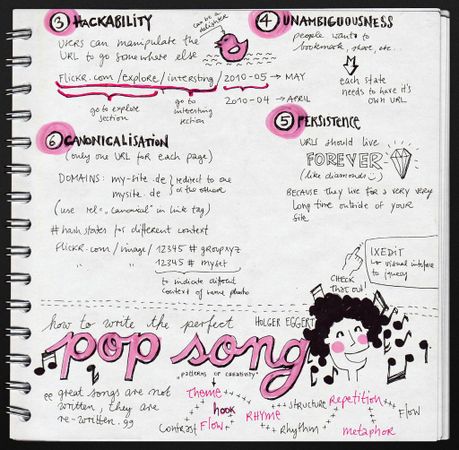 ③ HACKABILITY
can be a
delighter
USERS can manipulate the
URL to go somewhere else
FLICKR.com /explore/intersting/2010-05 → MAY
go to explore
section
go to
interesting
section
2010-04 → APRIL
④ UNAMBIGUOUSNESS
people want to
bookmark, share, etc...
each state
needs to have it's
own URL
⑥ CANONICALISATION
(only one URL for each page)
DOMAINS: my-site.de
mysite.de
redirect to one
of the other
(use rel="canonical" in link tag)
# hash states for different context
FLICKR.com/image/12345 # groupxyz
" " 12345 # myset
to indicate different
context of same photo
⑤ PERSISTENCE
URLS should live
FOREVER
(like diamonds :)
BECAUSE they live for a very very
long time outside of your
site.
IXEDIT
↳ visual interface
to jquery
CHECK
THAT out!
how to write the perfect
HOLGER EGGERT
pop song
"patterns of creativity"
great songs are not
written, they are
re-written.
Theme
hook
Contrast
Flow
RHYME
Rhythm
structure
Repetition
metaphor
Flow